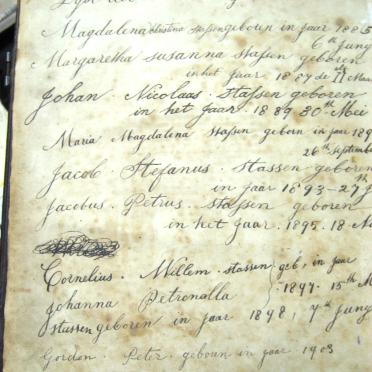 Magdalena christina stassen geboren in jaar 1885
6th Juny
Margaretha susanna stassen geboren
in het Jaar 1887 de 11th Maar
Johan Nicolaas stassen geboren
in het Jaar 1889 30th Mei
Maria Magdalena stassen geboren in jaar 189
26th September
Jacob Stefanus stassen geboren
in jaar 1893 - 27
Jacobus Petrus stassen geboren
in het Jaar 1895 18 N
Cornelius Willem stassen geb, in jaar
1897 15th M
Johanna Petronalla
stassen geboren in jaar 1898, 7th Juny
Gordon Peter geboun in jaar 1903